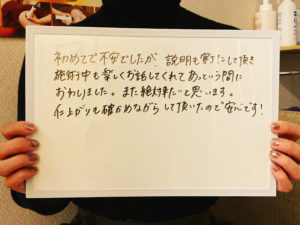 初めてで不安でしたが、説明も丁寧にして頂き
施術中も楽しくお話してくれてあっという間に
おわりました。また絶対来たいと思います。
仕上がりも確かめながらして頂いたので安心です!